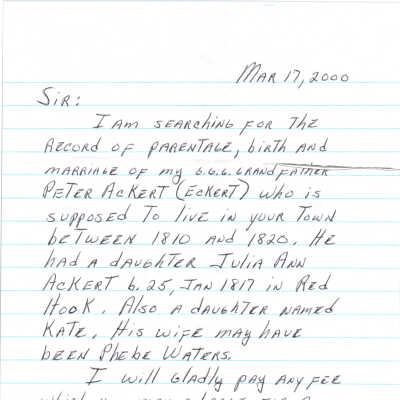 Mar 17, 2000
Sir:
I am searching for the
record of parentage, birth and
marriage of my G.G.G. Grandfather
Peter Ackert (Eckert) who is
supposed to live in your town
between 1810 and 1820. He
had a daughter Julia Ann
Ackert b. 25, Jan 1817 in Red
Hook. Also a daughter named
Kate. His wife may have
been Phebe Waters.
I will gladly pay any fee